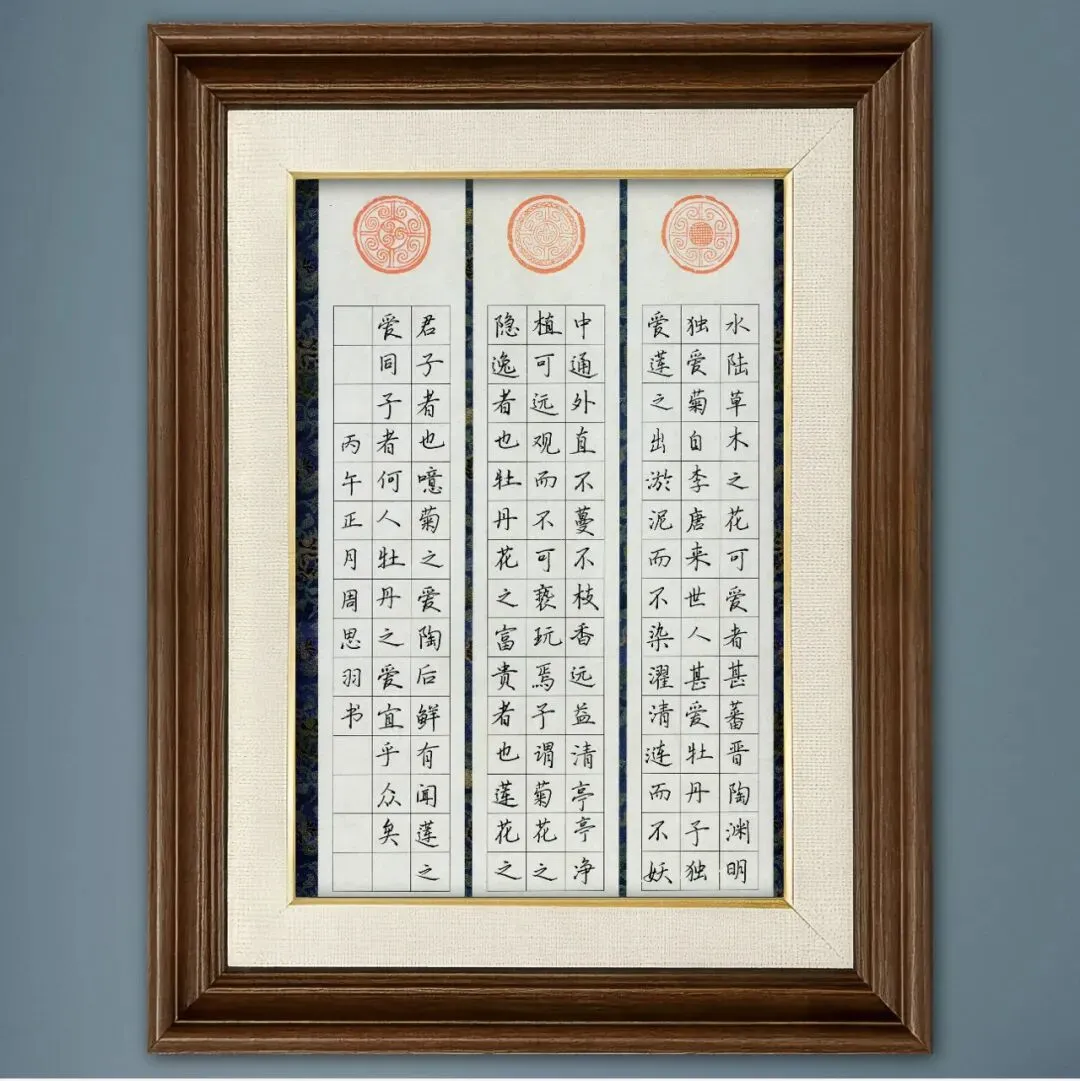 水陆草木之花可爱者甚蕃晋陶渊明
独爱菊自李唐来世人甚爱牡丹子独
爱莲之出淤泥而不染濯清涟而不妖
中通外直不蔓不枝香远益清亭亭净
植可远观而不可亵玩焉子谓菊花之
隐逸者也牡丹花之富贵者也莲花之
君子者也噫菊之爱陶后鲜有闻莲之
爱同子者何人牡丹之爱宜乎众矣
丙午正月周思羽书